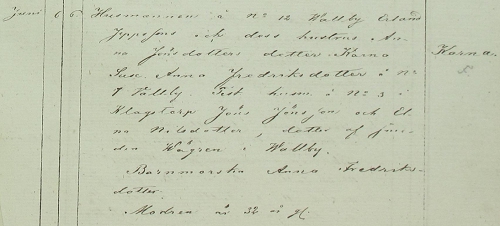 Juni 6 6 Husmannens å No 12 Wallby Erland
Jeppssons och dess hustrus An-
na Jönsdotters dotter Karna
Karna.
Susc. Anna Fredriksdotter å No
7 Tallby. Test. husm. å No 3 i
Klagstorp Jöns Jönsson och El-
na Nilsdotter, dotter af
Wågren i Wallby.
Barnmorska Anna Fredriks-
dotter.
Modren är 32 år gl.